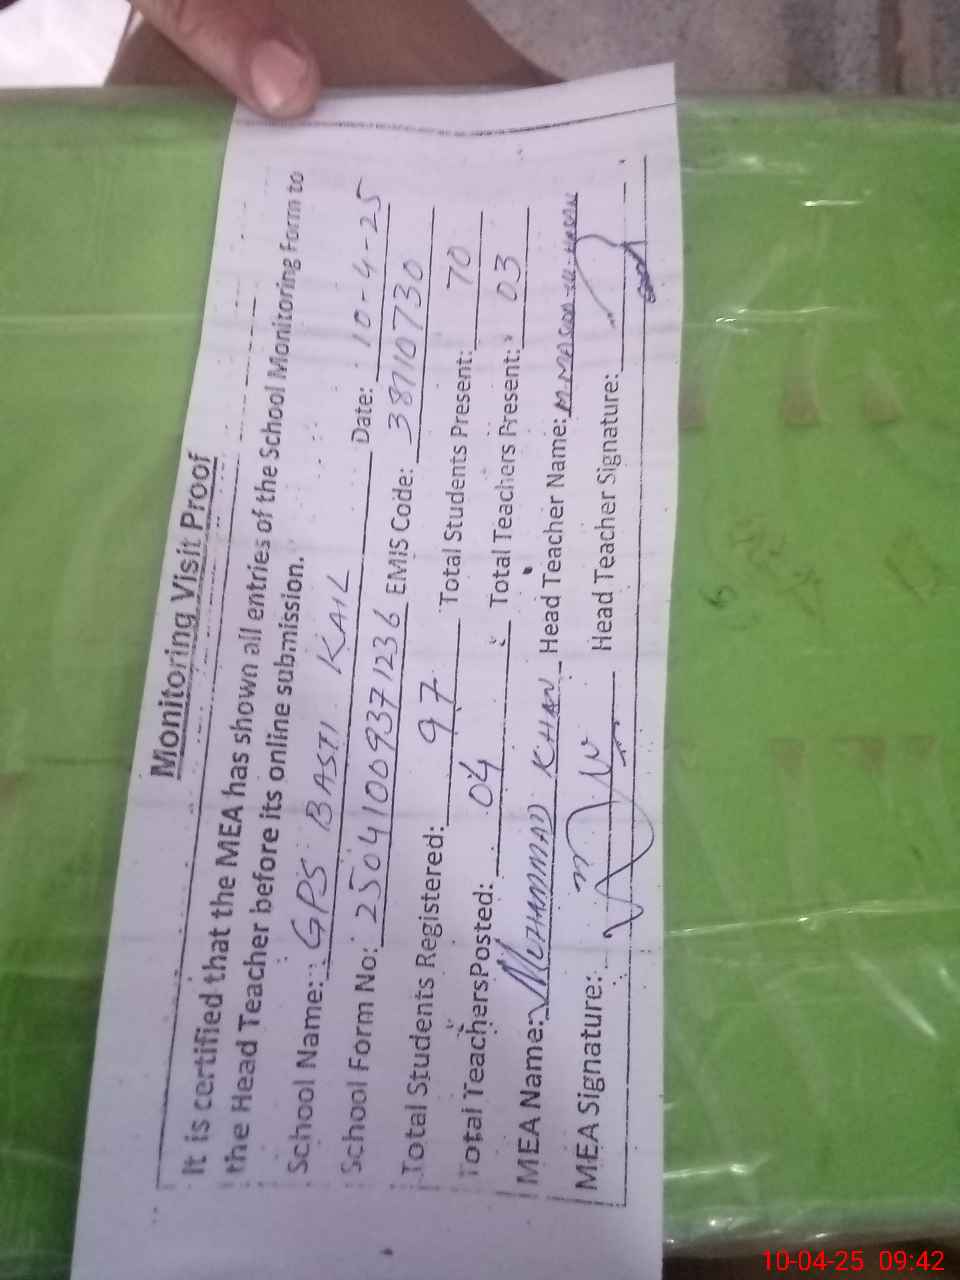 Monitoring Visit Proof
It is certified that the MEA has shown all entries of the School Monitoring Form to
the Head Teacher before its online submission.
School Name: GPS BASTI KAIL Date: 10-4-25
School Form No: 25041009371236 EMIS Code: 38710730
Total Students Registered: 97 Total Students Present: 70
Total TeachersPosted: 04 Total Teachers Present: 03
MEA Name: MUHAMMAD KHAN Head Teacher Name:
MEA Signature: Head Teacher Signature:
10-04-25 09:42